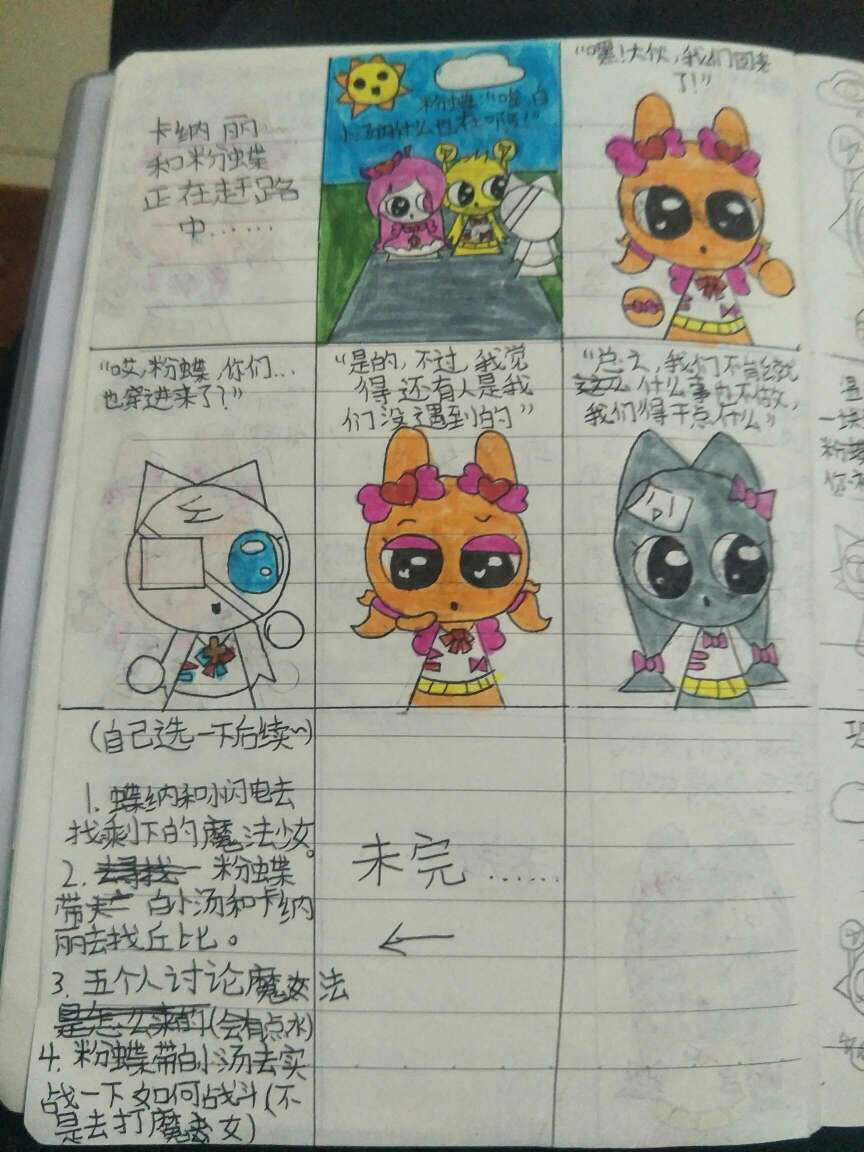 卡纳丽
和粉蝶
正在赶路
中……
粉蝶:“哎,白
小汤为什么也在
“嘿!大伙,我们回来
了!”
“哎,粉蝶,你们…
也穿进来了?”
“是的,不过,我觉
得还有人是我
们没遇到的”
“总之,我们不能就
什么事也不做,
我们得干点什么”
(自己选一下后续~)
1. 蝶纳和小闪电去
找剩下的魔法少女。
2. 去寻找 粉蝶
带 白小汤和卡纳
丽去找丘比。
3. 五个人讨论魔女法
是怎么来的(会有点水)
4. 粉蝶带白小汤去实
战一下如何战斗(不
是去打魔女)
未完……
←